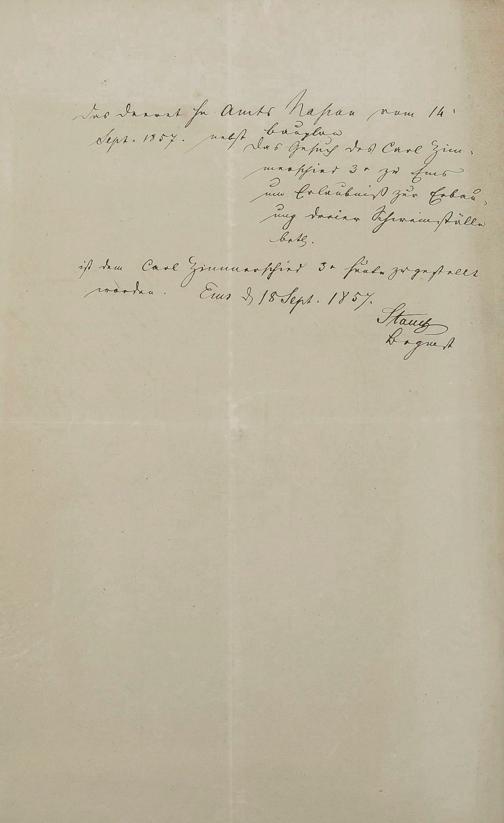 Das Decret Hr Amts Nassau vom 14.
Sept. 1857. nebst Bauplan
das Gesuch des Carl Zim-
merschied 3r zu Ems
um Erlaubniß zur Erbau-
ung dreier Schweinställe
betr.
ist dem Carl Zimmerschied 3r heute zugestellt
worden. Ems d 18 Sept. 1857.